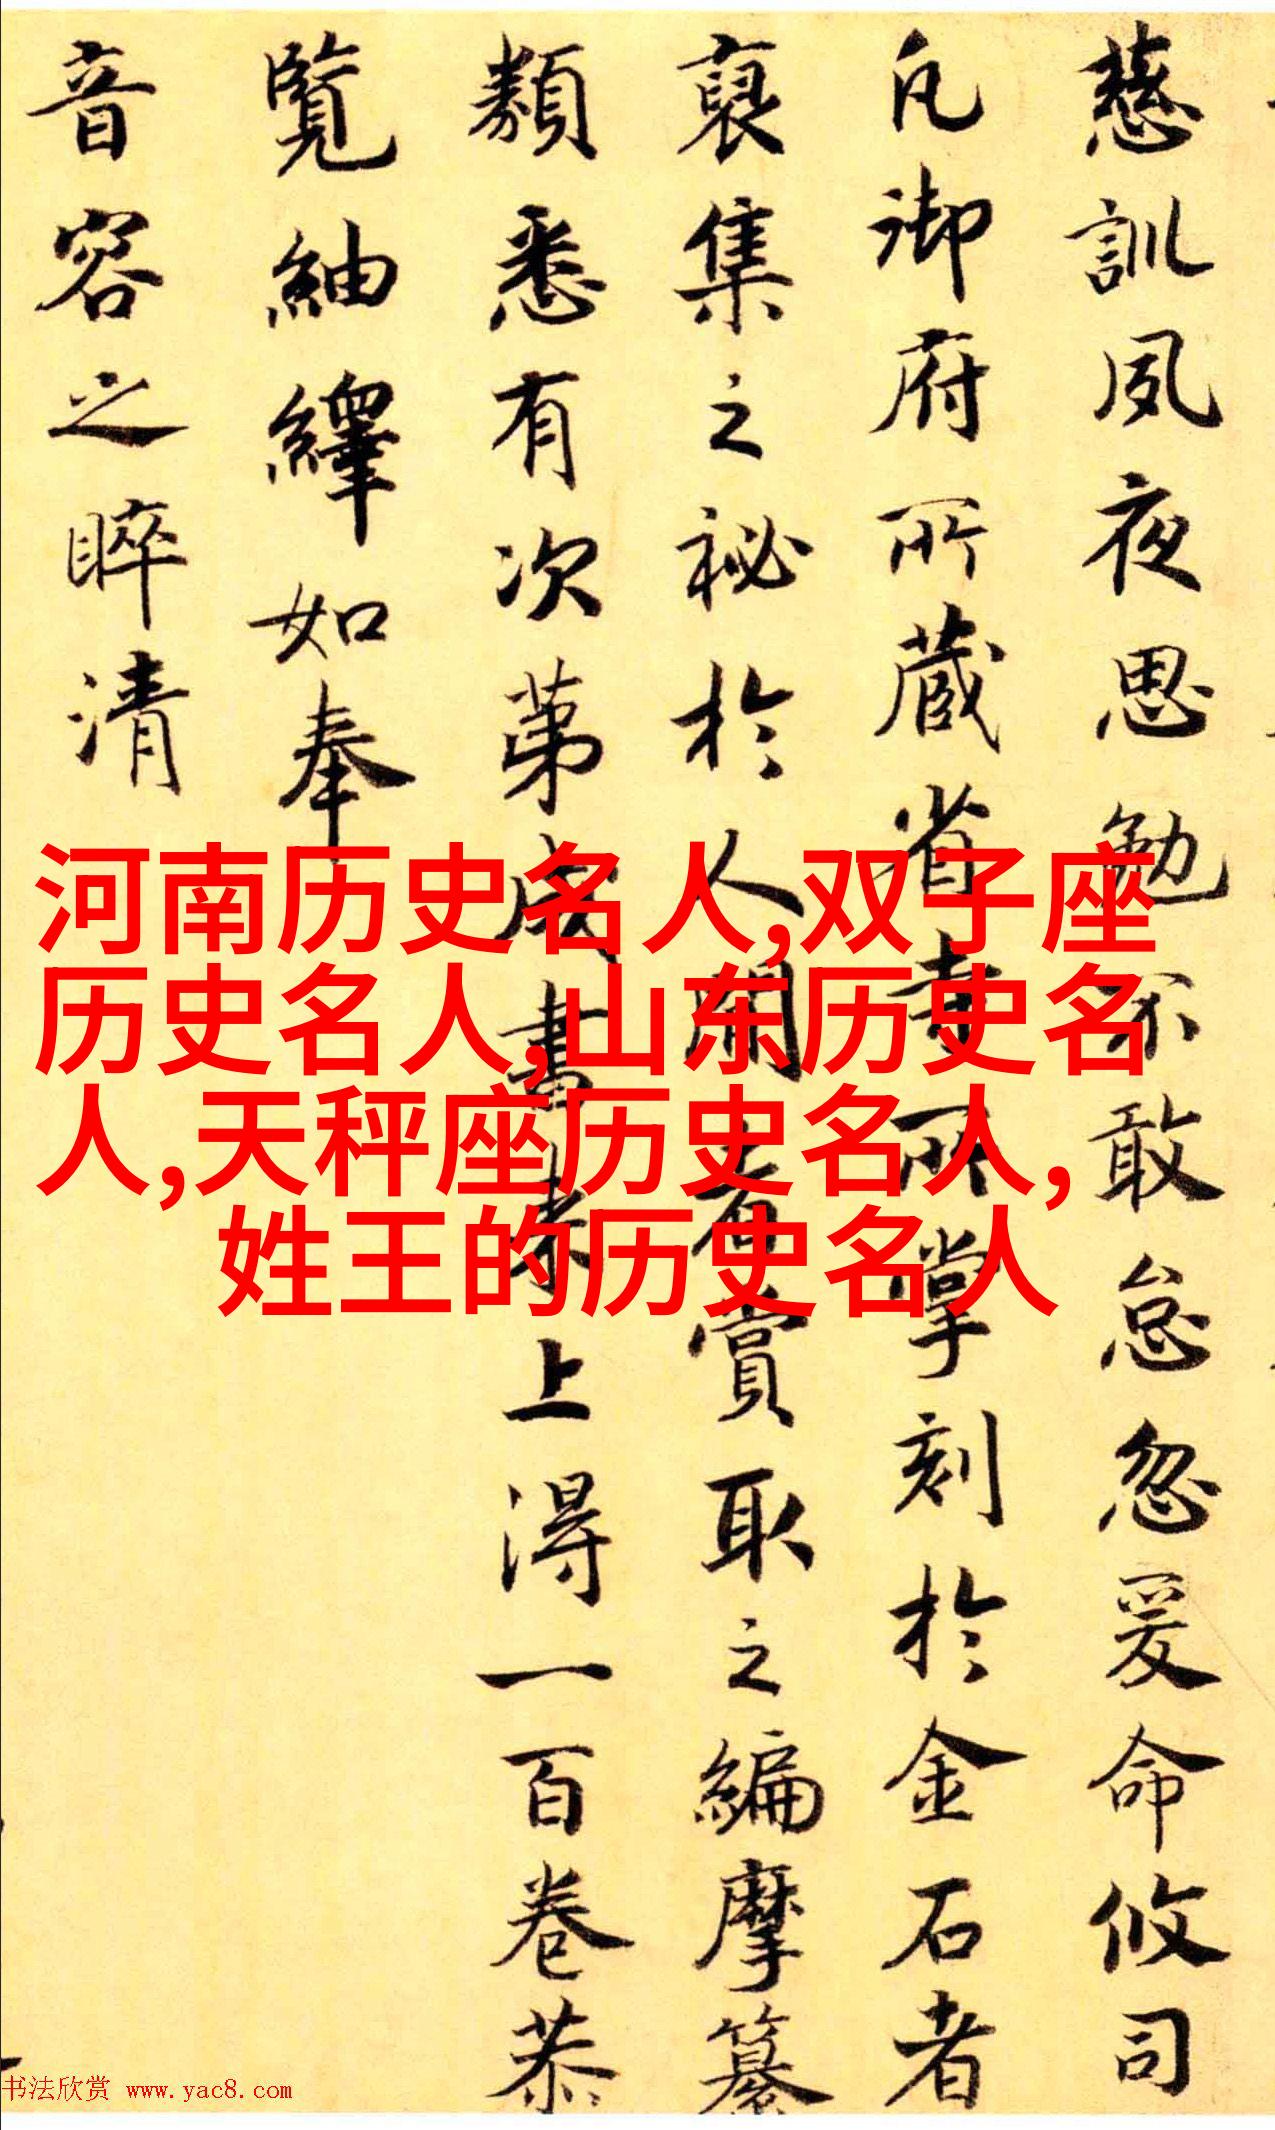 慈訓夙夜思勉不敢怠忽爰命攸司
凡御府所蔵省寺所掌刻於金石者
裒集之祕於人間者賞取之編摩纂
類悉有次第成書來上得一百卷恭
覽紬繹如奉
音容之睟清
河南历史名人,双子座
历史名人,山东历史名
人,天秤座历史名人,
姓王的历史名人
书法欣赏 www.yac8.com